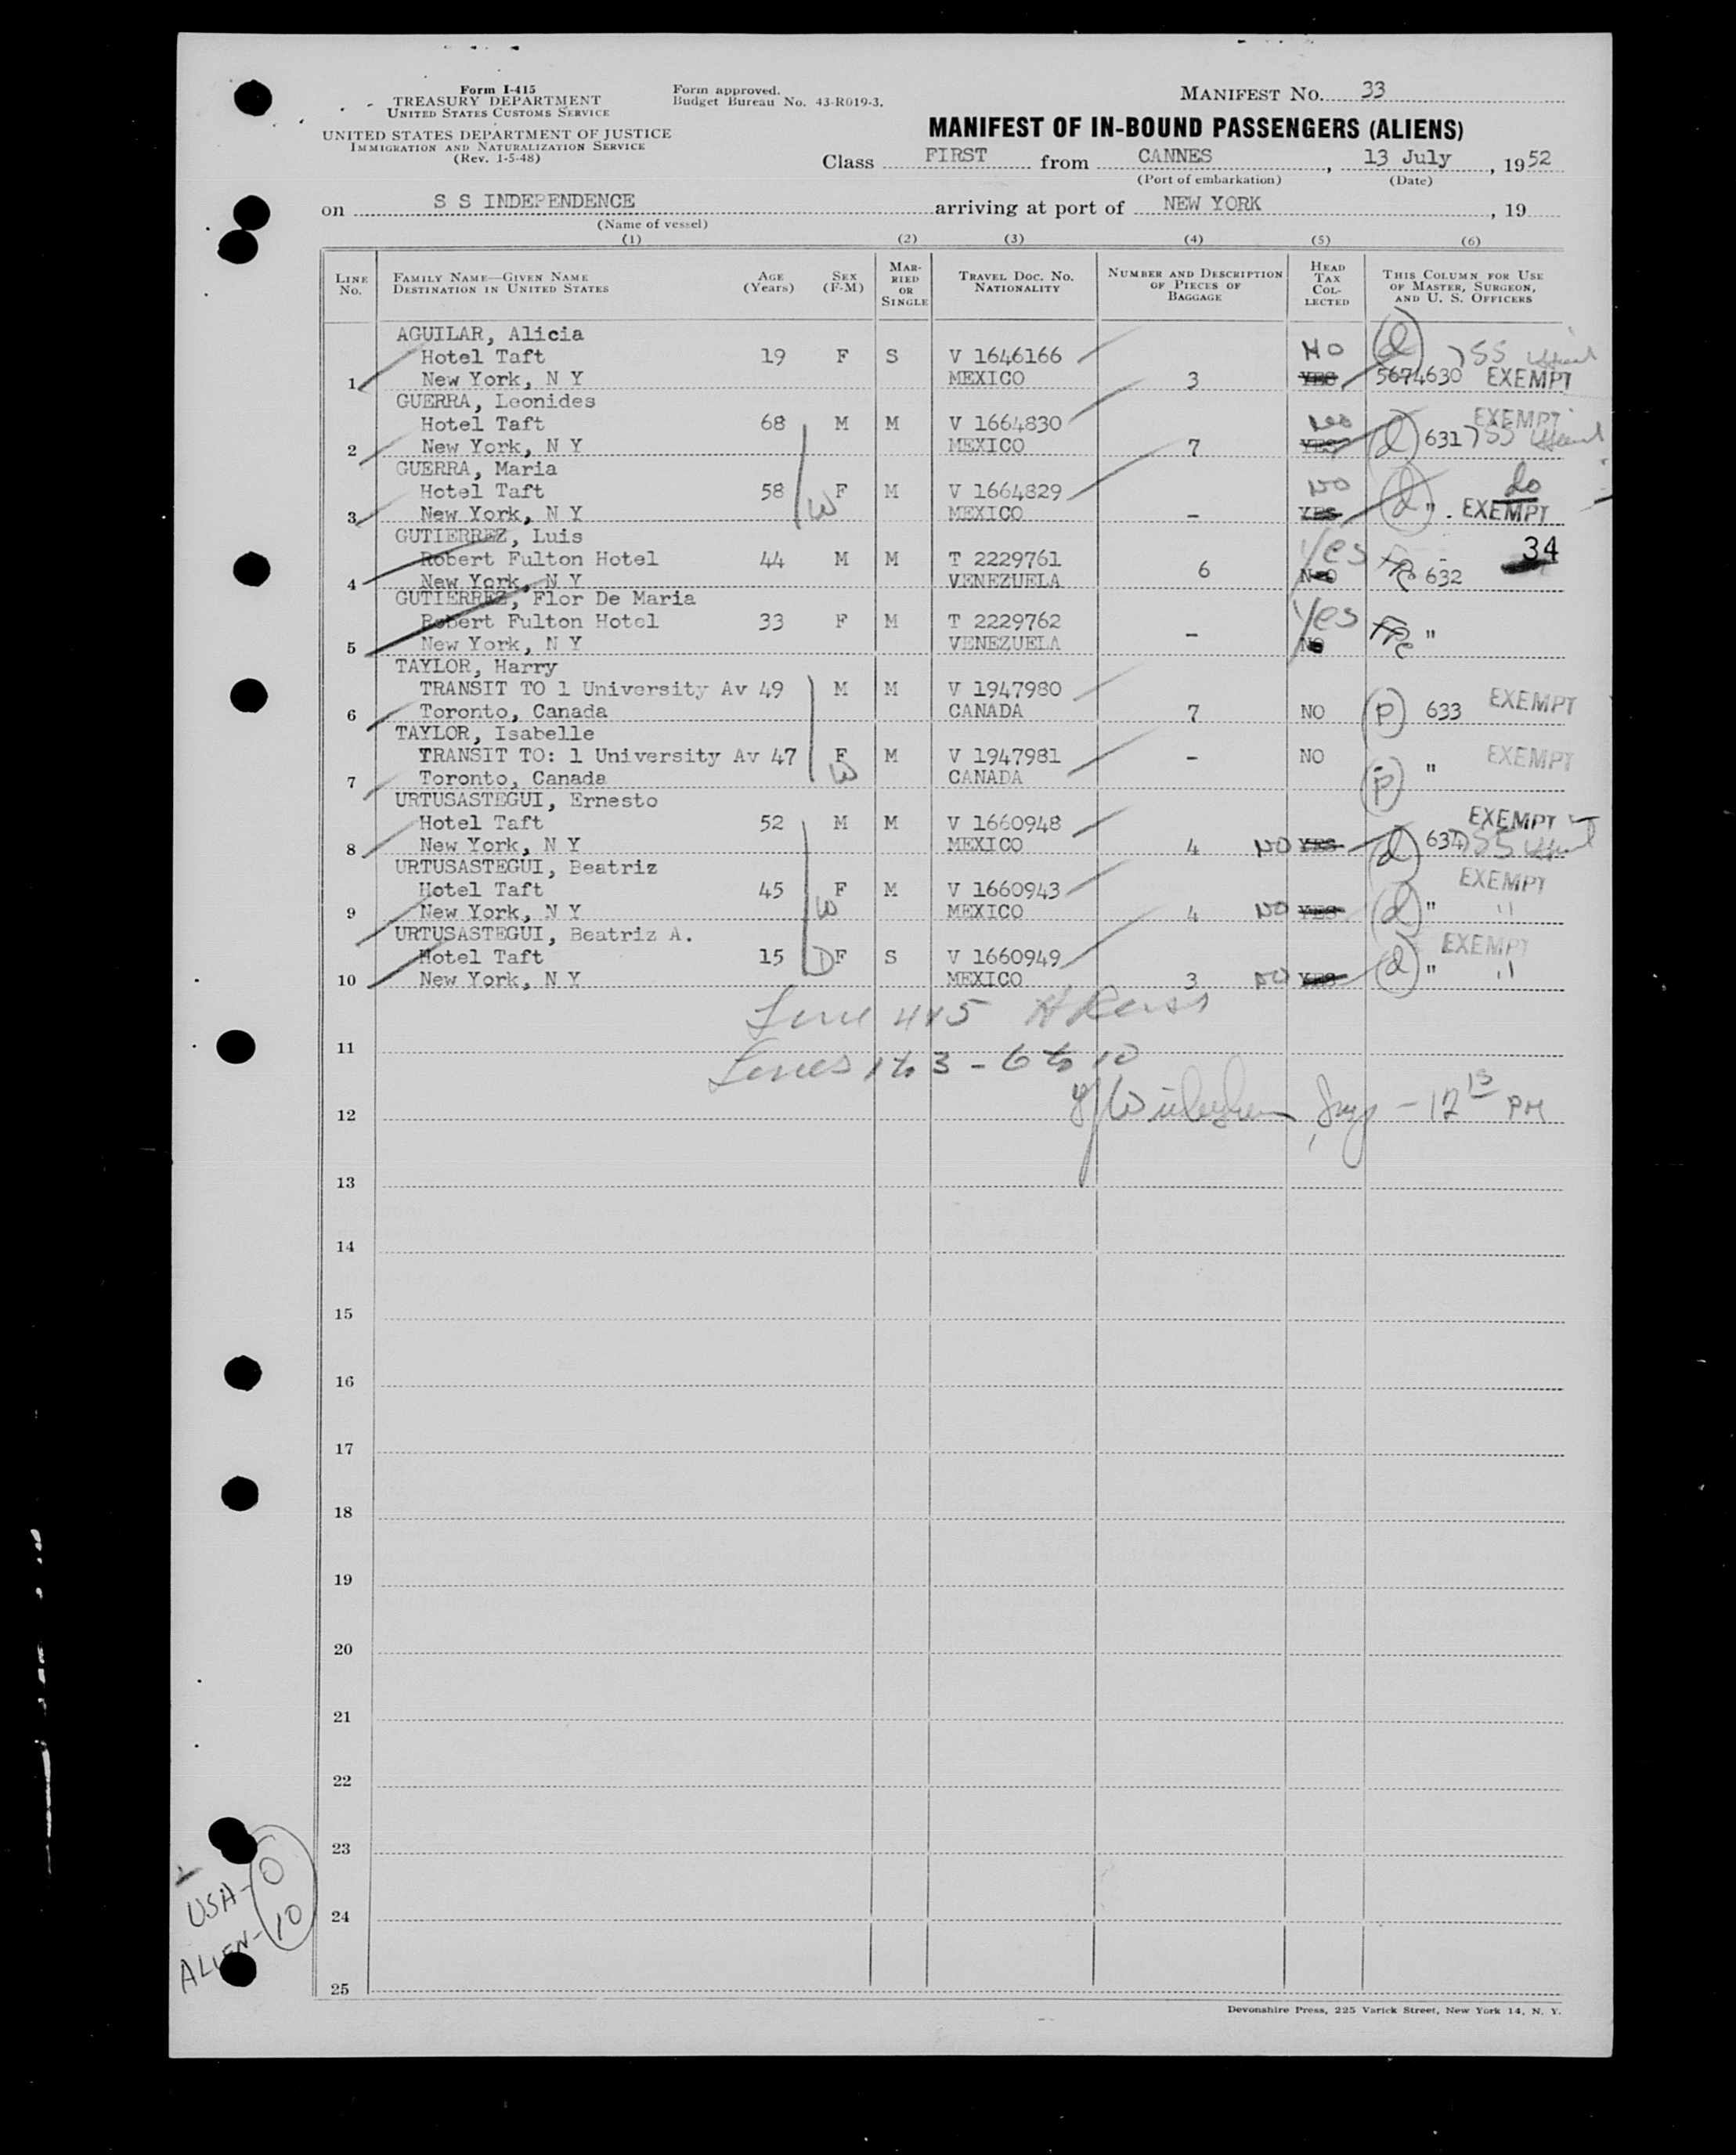 Form I-415
TREASURY DEPARTMENT
UNITED STATES CUSTOMS SERVICE
UNITED STATES DEPARTMENT OF JUSTICE
IMMIGRATION AND NATURALIZATION SERVICE
(Rev. 1-5-48)
Form approved.
Budget Bureau No. 43-R019-3.
MANIFEST NO. 33
MANIFEST OF IN-BOUND PASSENGERS (ALIENS)
Class FIRST from CANNES, 13 July, 1952
(Port of embarkation) (Date)
on S S INDEPENDENCE arriving at port of NEW YORK, 19
(Name of vessel)
(1) (2) (3) (4) (5) (6)
LINE No. FAMILY NAME—GIVEN NAME DESTINATION IN UNITED STATES AGE (Years) SEX (F-M) MARRIED OR SINGLE TRAVEL DOC. NO. NATIONALITY NUMBER AND DESCRIPTION OF PIECES OF BAGGAGE HEAD TAX COLLECTED THIS COLUMN FOR USE OF MASTER, SURGEON, AND U. S. OFFICERS
AGUILAR, Alicia
Hotel Taft 19 F S V 1646166 NO (d) SS
1 New York, N Y MEXICO 3 YES 5674630 EXEMPT
GUERRA, Leonides EXEMPT
Hotel Taft 68 M M V 1664830
2 New York, N Y MEXICO 7 YES (d) 631 SS
GUERRA, Maria
Hotel Taft 58 F M V 1664829 NO do
3 New York, N Y W MEXICO - YES (d) " EXEMPT
GUTIERREZ, Luis 34
Robert Fulton Hotel 44 M M T 2229761 Yes
4 New York, N Y VENEZUELA 6 NO 632
GUTIERREZ, Flor De Maria
Robert Fulton Hotel 33 F M T 2229762 Yes
5 New York, N Y VENEZUELA - NO "
TAYLOR, Harry
TRANSIT TO 1 University Av 49 M M V 1947980 EXEMPT
6 Toronto, Canada CANADA 7 NO (P) 633
TAYLOR, Isabelle
TRANSIT TO: 1 University Av 47 F M V 1947981 - NO EXEMPT
7 Toronto, Canada W CANADA (P) "
URTUSASTEGUI, Ernesto EXEMPT
Hotel Taft 52 M M V 1660948
8 New York, N Y MEXICO 4 NO YES (d) 634 SS
URTUSASTEGUI, Beatriz EXEMPT
Hotel Taft 45 F M V 1660943
9 New York, N Y W MEXICO 4 NO YES (d) " "
URTUSASTEGUI, Beatriz A. EXEMPT
Hotel Taft 15 D F S V 1660949
10 New York, N Y MEXICO 3 NO YES (d) " "
Line 4+5
11 Lines 1 to 3 - 6 to 10
12 - 12 15 PM
13
14
15
16
17
18
19
20
21
22
23
24
25
USA- 0
ALIEN- 10
Devonshire Press, 225 Varick Street, New York 14, N. Y.